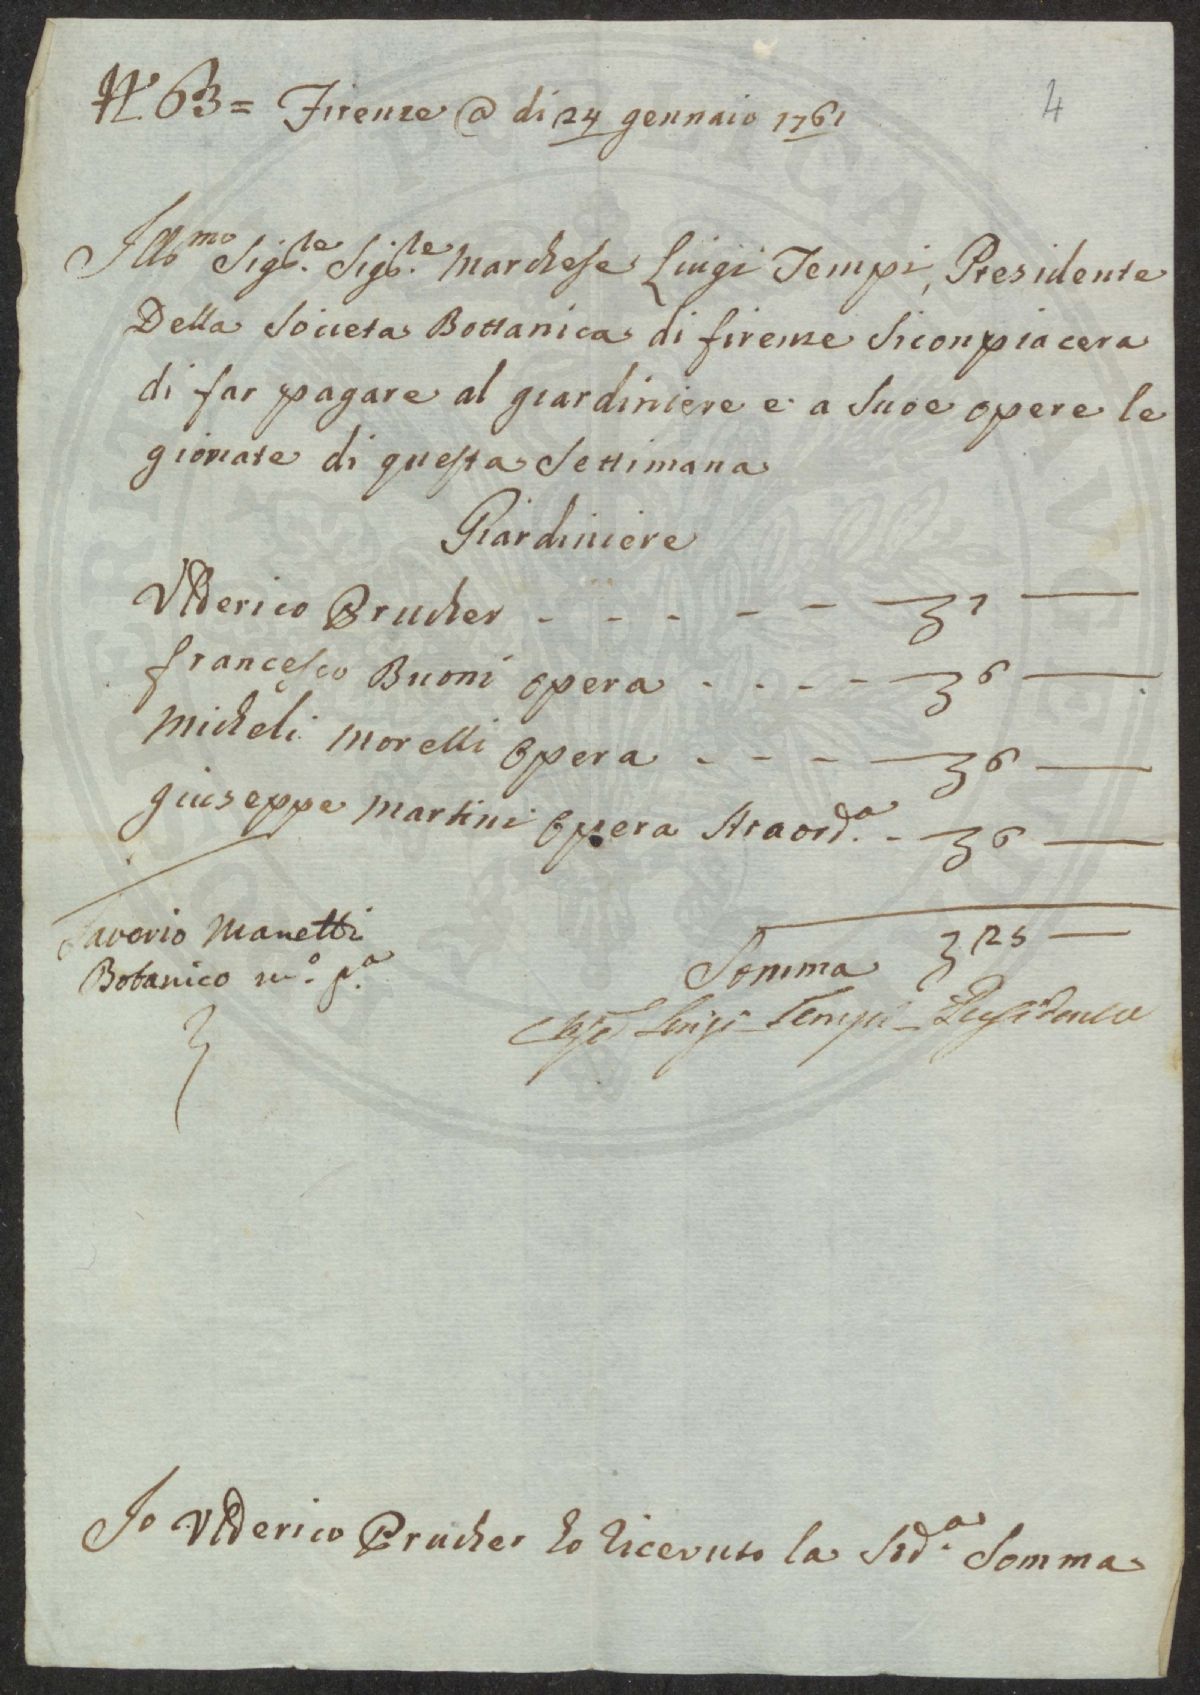 N.° 63 = Firenze @ di 24 gennaio 1761
4
Ill.mo Sig.re Sig.re Marchese Luigi Tempi, Presidente
Della Societa Bottanica di firenze Siconpiacera
di far pagare al giardiniere e a Suoe opere le
giornate di questa Settimana
Giardiniere
Ulderico Prucher - - - - - - 7 —
francesco Buoni opera - - - - - 6 —
Micheli Morelli opera - - - - 6 —
giuseppe Martini opera Straord.a - 6 —
Saverio Manetti
Botanico m.o p.a
Somma 25 —
Luigi Tempi Presidente
Io Ulderico Prucher ho riceuuto la Sud.a Somma